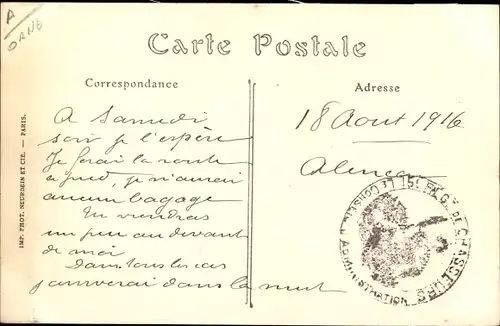 A
ORNE
Carte Postale
Correspondance
Adresse
A Samedi
soir je l'espère
Je ferai la route
à pied, je n'aurai
aucun bagage
Tu viendras
un peu au devant
de moi
Dans tous les cas
j'arriverai dans la nuit
18 Aout 1916
Alençon
15e REGt DE CHASSEURS
LE CONSEIL D'ADMINISTRATION
IMP. PHOT. NEURDEIN ET CIE. — PARIS.